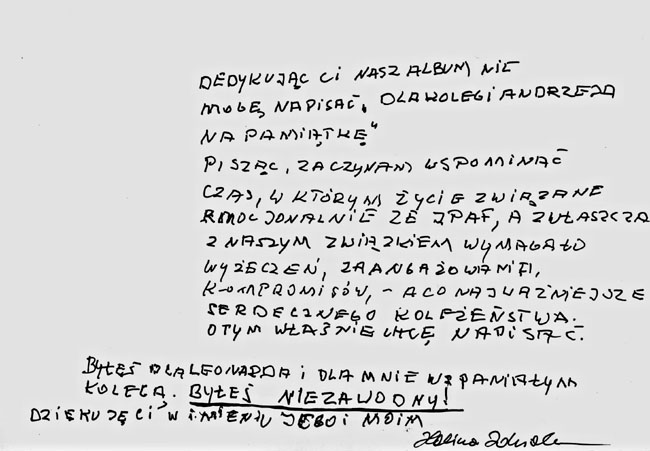 DEDYKUJĄC CI NASZ ALBUM NIE
MOGĘ NAPISAĆ, DLA KOLEGI ANDRZEJA
NA PAMIĄTKĘ"
PISZĄC, ZACZYNAM WSPOMINAĆ
CZAS, W KTÓRYM ŻYCIE ZWIĄZANE
EMOCJONALNIE ZE ZPAF, A ZWŁASZCZA
Z NASZYM ZWIĄZKIEM WYMAGAŁO
WYŻECZEŃ, ZAANGAŻOWANIA,
KOMPROMISÓW, - A CO NAJWAŻNIEJSZE
SERDECZNEGO KOLEŻEŃSTWA.
O TYM WŁAŚNIE CHCĘ NAPISAĆ.
BYŁEŚ DLA LEONARDA I DLA MNIE WSPANIAŁYM
KOLEGĄ. BYŁEŚ NIEZAWODNY!
DZIĘKUJĘ CI W IMIENIU JEGO I MOIM